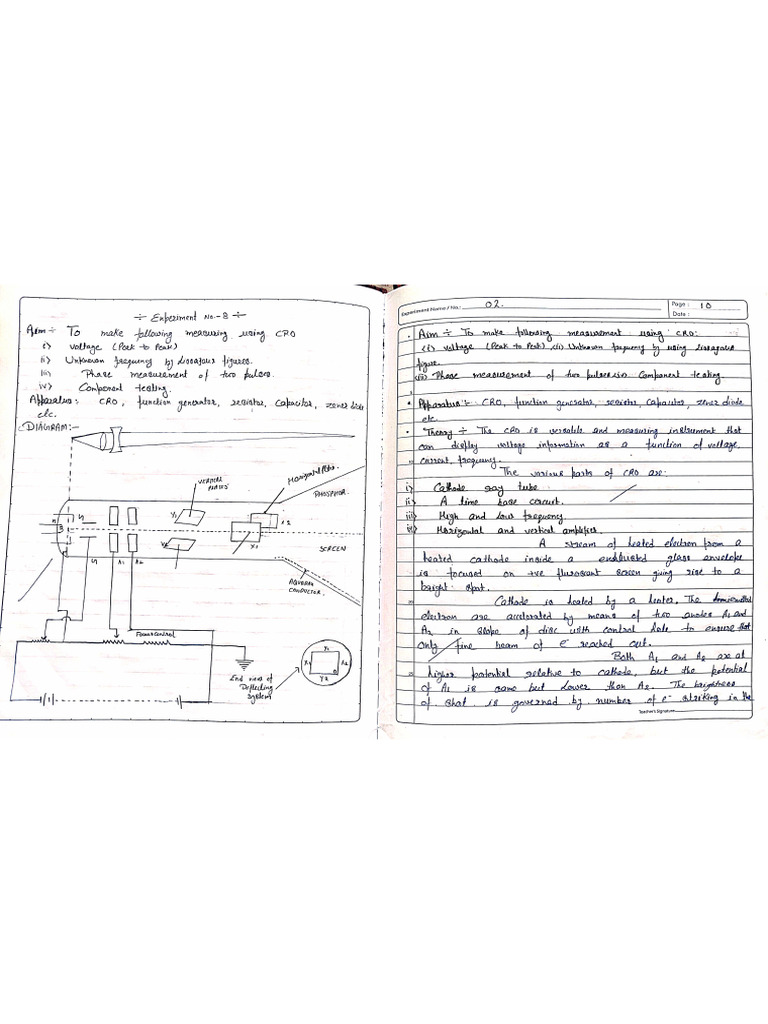 ÷ Experiment No.-8 ÷
Aim ÷ To make following measuring using CRO
i) voltage (Peak to Peak)
ii) Unknown frequency by lissajous figures.
iii) Phase measurement of two pulses.
iv) Component testing.
Apparatus: CRO, function generator, resistor, Capacitor, zener diode
etc.
DIAGRAM:-
VERTICAL
PLATES
Horizontal Plates.
PHOSPHOR
Y1
X2
Y2
X1
SCREEN
AQUADAG
CONDUCTOR
A1
A2
Focus control
End view of
Deflecting
System
Y1
X1
X2
Y2
Experiment Name / No.: 02.
Page: 10
Date:
• Aim ÷ To make following measurement using CRO:
(i) voltage (Peak to Peak) (ii) Unknown frequency by using lissajous
figure.
(iii) Phase measurement of two pulses (iv) Component testing
• Apparatus:- CRO, function generator, resistor, Capacitor, zener diode
etc.
• Theory ÷ The CRO is versatile and measuring instrument that
can display voltage information as a function of voltage,
current, frequency.
The various parts of CRO are:
i) Cathode ray tube
ii) A time base circuit.
iii) High and Low frequency.
iv) Horizontal and vertical amplifier.
A stream of heated electron from a
heated cathode inside a glass envelope
is focused on +ve screen giving rise to a
bright spot.
Cathode is heated by a heater. The
electron are accelerated by means of two anodes A1 and
A2 in of disc with control hole to ensure that
only fine beam of e⁻ reached out.
Both A1 and A2 are at
higher potential relative to cathode, but the potential
of A1 is same but lower than A2. The brightness
of is governed by number of e⁻ striking in the
Teacher's Signature